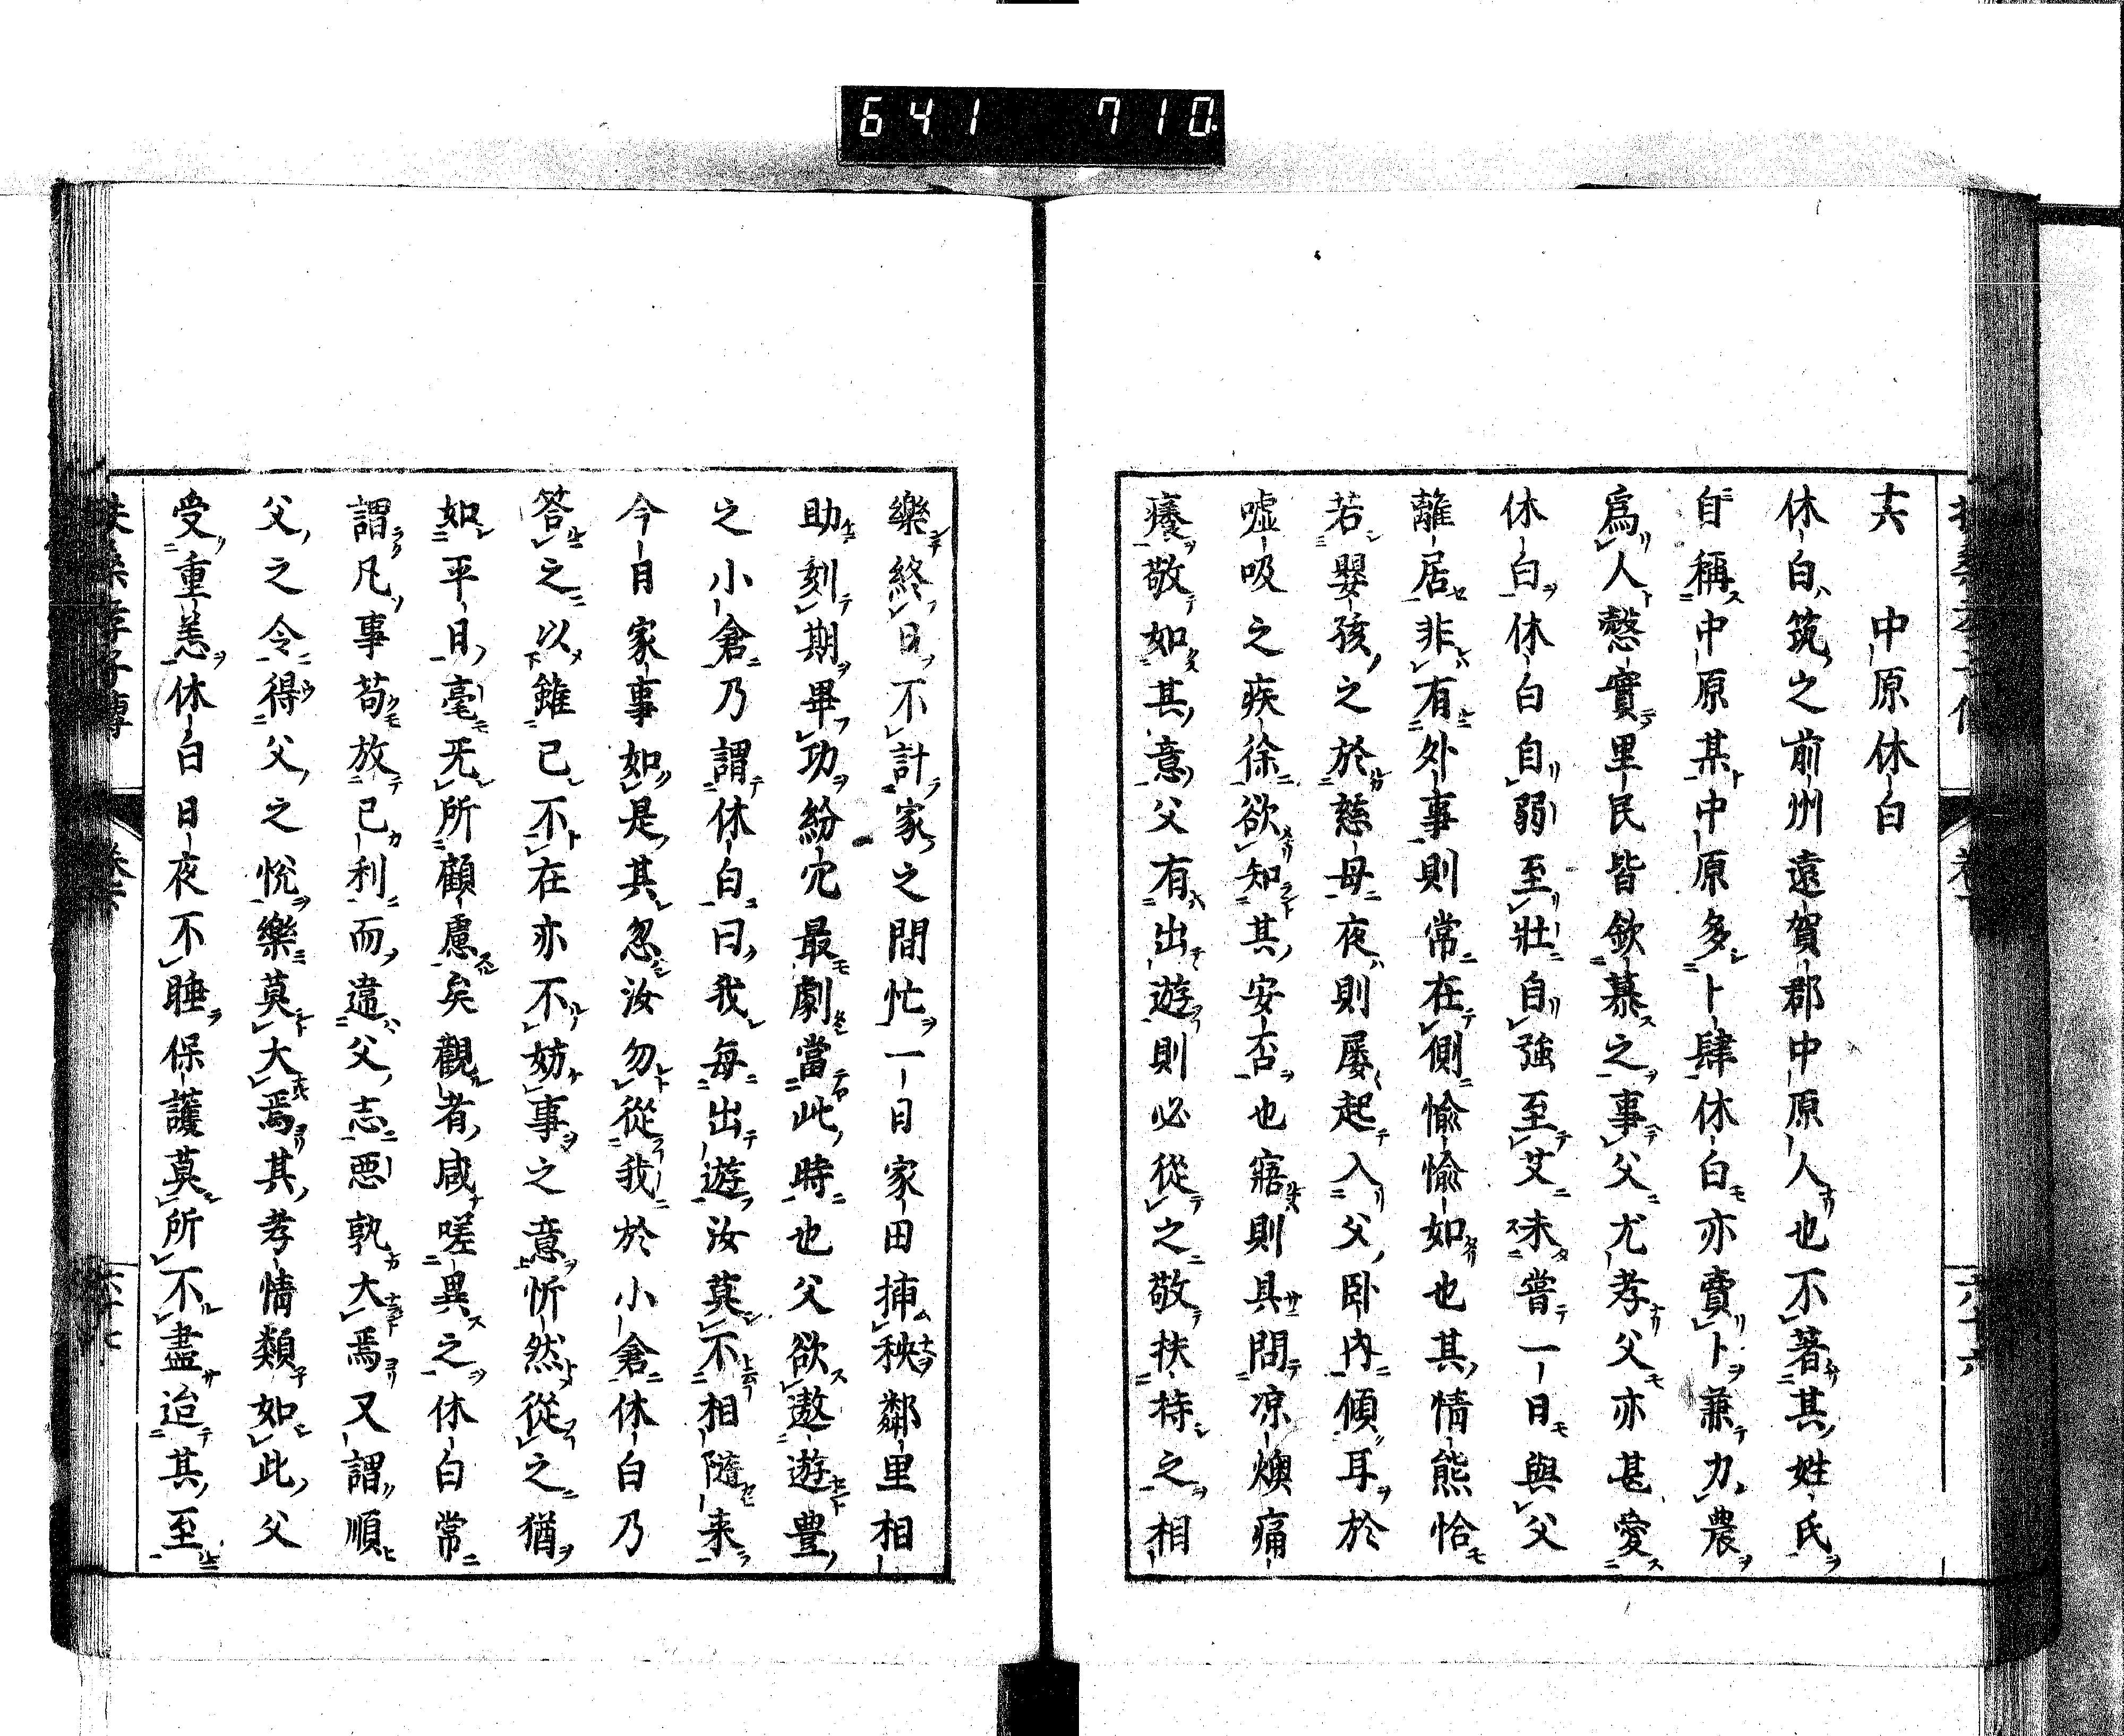 641 710
十六 中原休白
休白筑之前州遠賀郡中原人也不著其姓氏
自稱中原某中原多卜肆休白亦賣卜兼力農
爲人愨實里民皆欽慕之事父尤孝父亦甚愛
休白休白自弱至壯自強至艾未嘗一日與父
離居非有外事則常在側愉愉如也其情態恰
若嬰孩之於慈母夜則屡起入父臥內傾耳於
嘘吸之疾徐欲知其安否也寤則具問凉燠痛
癢敬如其意父有出遊則必從之敬扶持之相
樂終日不計家之間忙一日家田挿秧鄰里相
助刻期畢功紛宂最劇當此時也父欲遨遊豊
之小倉乃謂休白曰我每出遊汝莫不相隨来
今日家事如是其忽汝勿從我於小倉休白乃
答之以雖己不在亦不妨事之意忻然從之猶
如平日毫无所顧慮矣觀者咸嗟異之休白常
謂凡事苟放己利而違父志惡孰大焉又謂順
父之令得父之悅樂莫大焉其孝情類如此父
受重恙休白日夜不睡保護莫所不盡迨其至
扶桑孝子傳